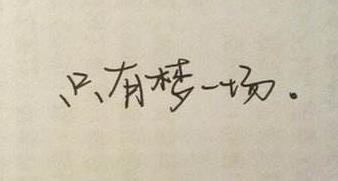 只有梦一场.